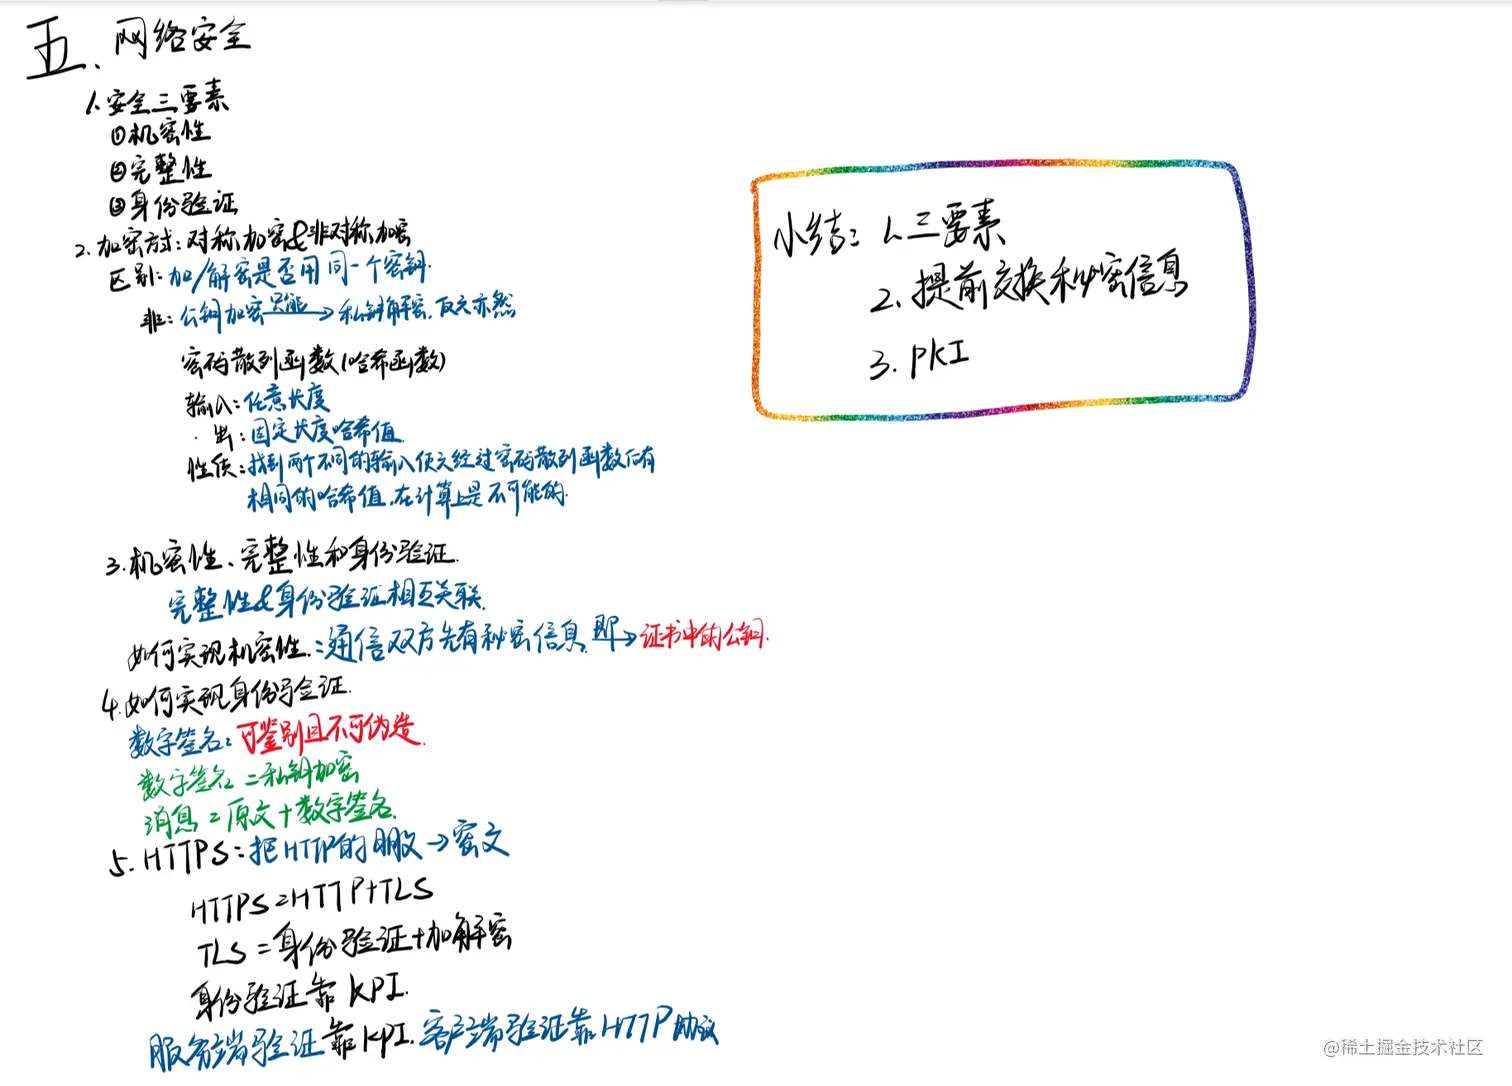 五、网络安全
1. 安全三要素
①机密性
②完整性
③身份验证
2. 加密方式：对称加密&非对称加密
区别：加/解密是否用同一个密钥.
非：公钥加密只能→私钥解密.反之亦然
密码散列函数(哈希函数)
输入：任意长度
·出：固定长度哈希值.
性质：找到两个不同的输入使之经过密码散列函数后有
相同的哈希值.在计算上是不可能的.
3. 机密性、完整性和身份验证.
完整性&身份验证相互关联.
如何实现机密性.：通信双方先有秘密信息.即→证书中的公钥.
4. 如何实现身份验证.
数字签名：可鉴别且不可伪造.
数字签名=私钥加密
消息=原文+数字签名.
5. HTTPS：把HTTP的明文→密文
HTTPS=HTTP+TLS
TLS=身份验证+加解密
身份验证靠KPI.
服务端验证靠KPI.客户端验证靠HTTP协议
小结：1. 三要素
2. 提前交换秘密信息
3. PKI
@稀土掘金技术社区